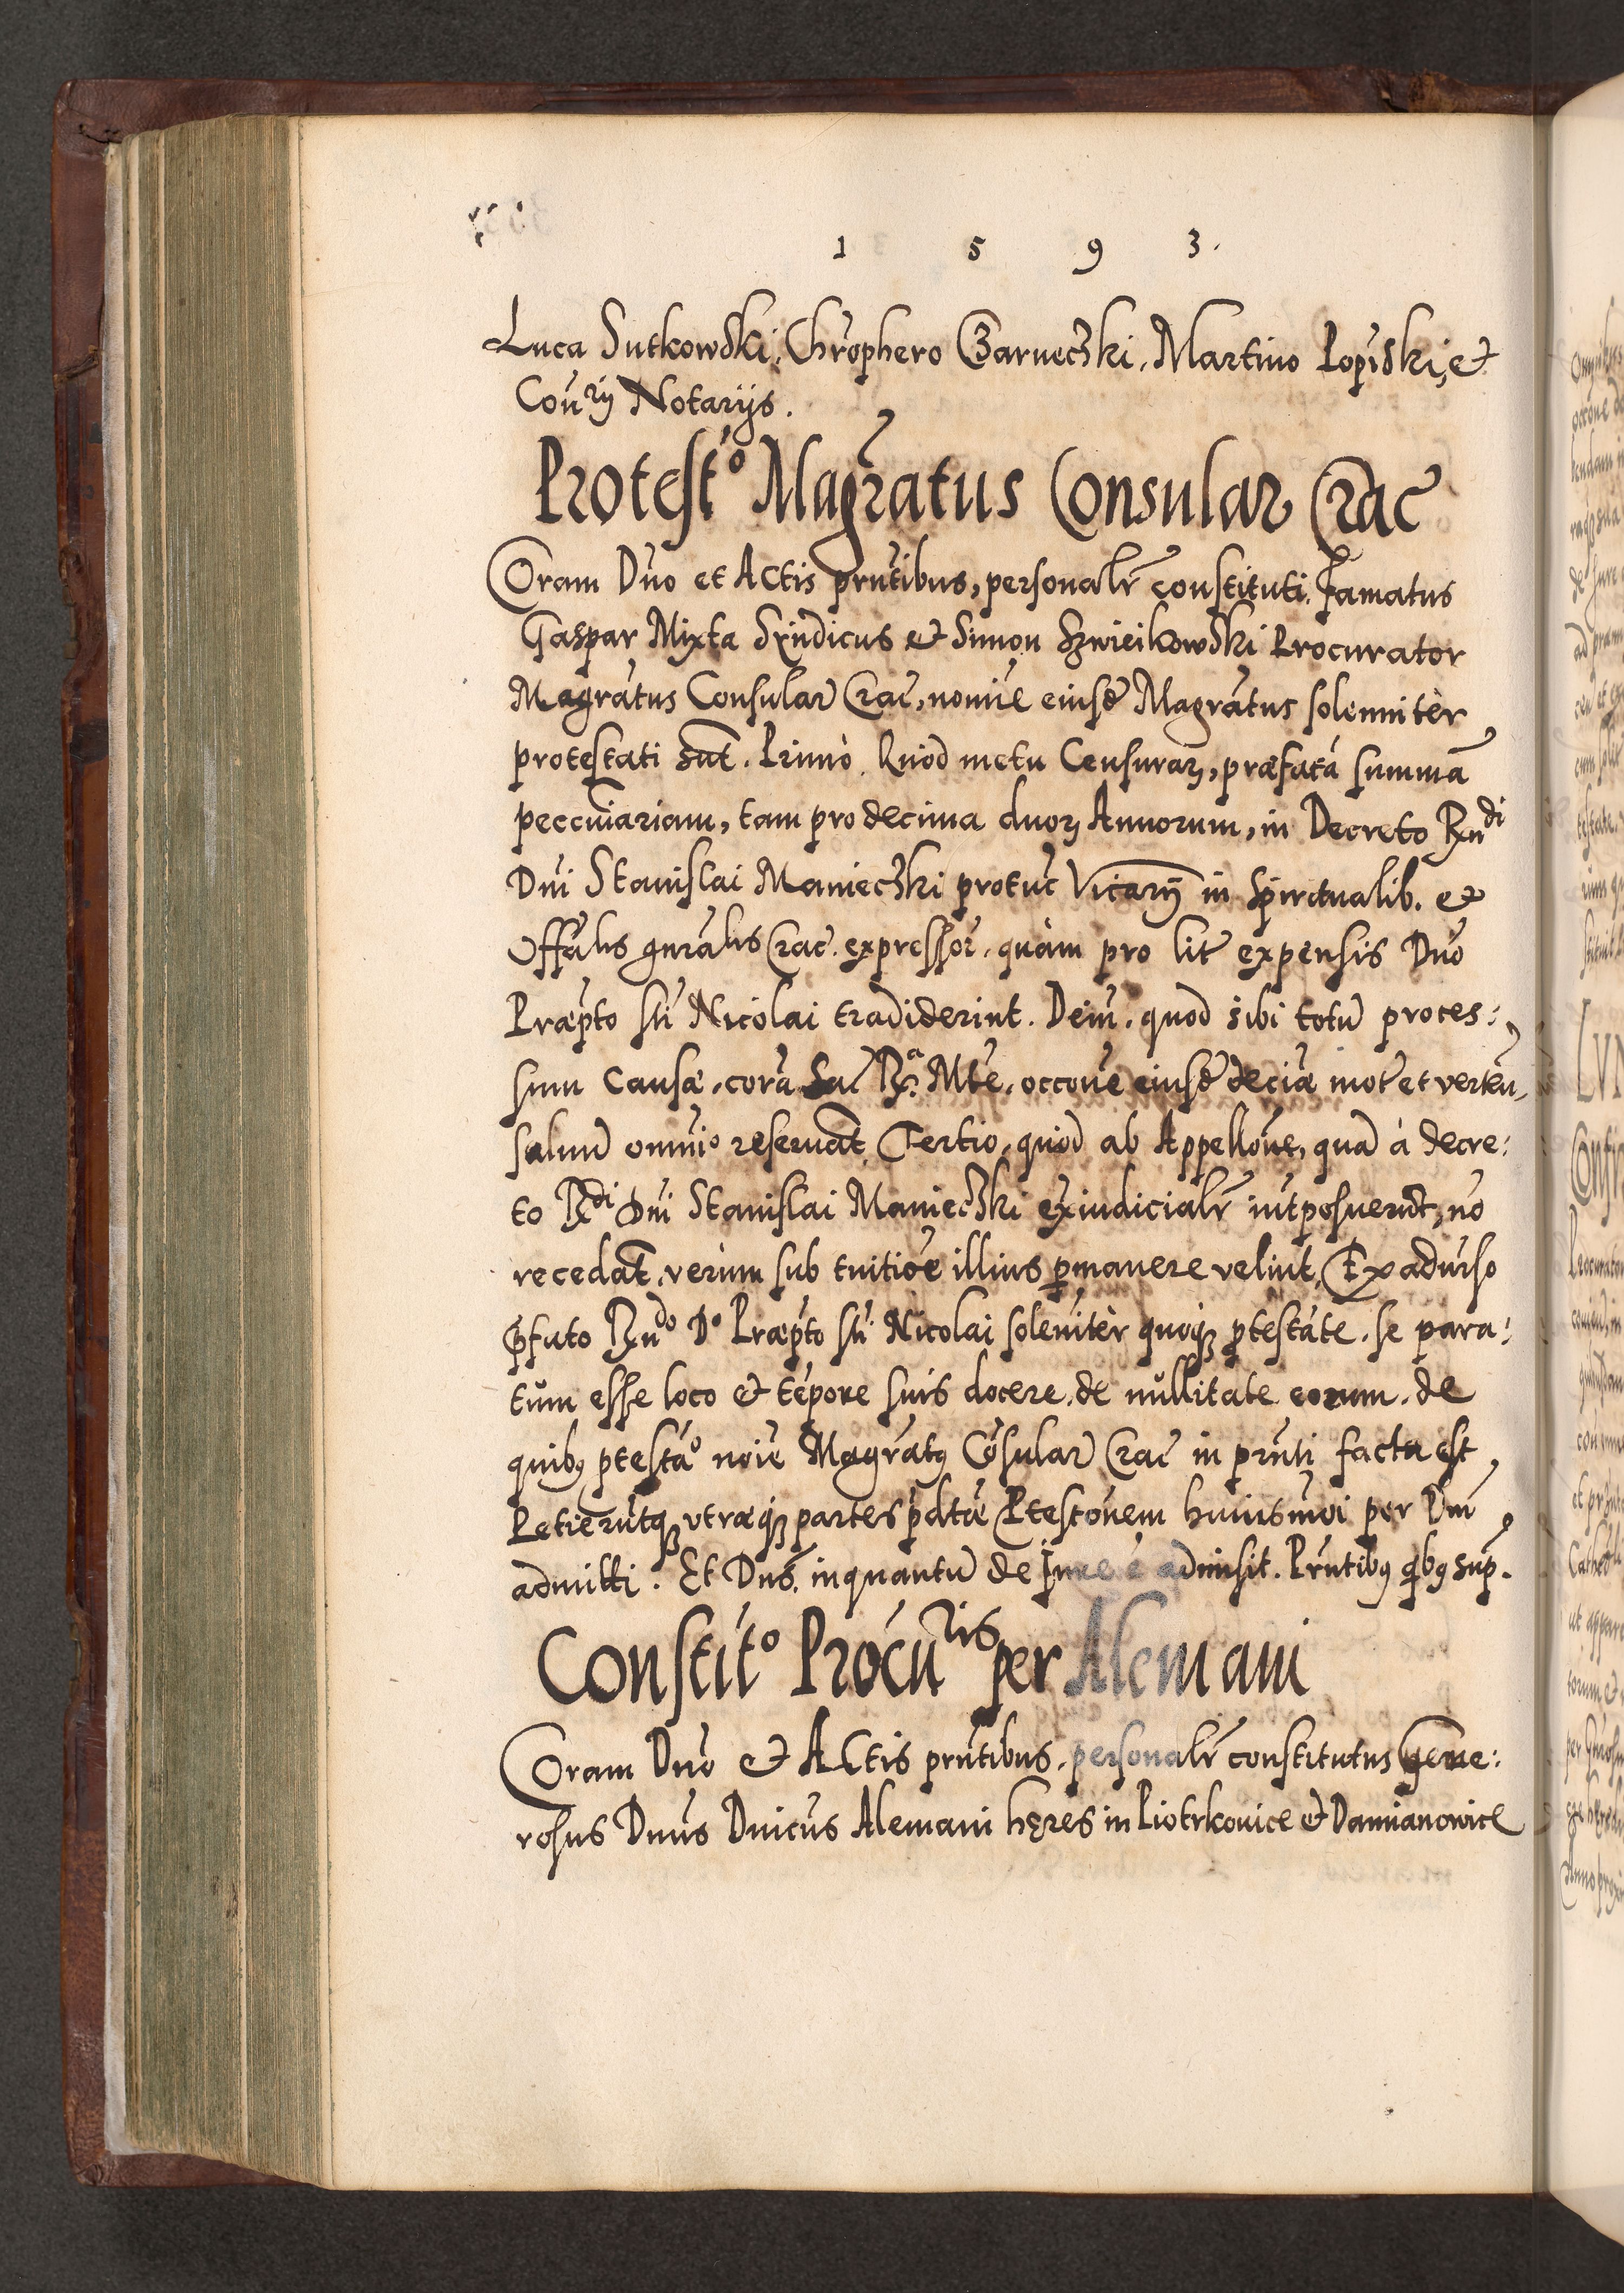 1 5 9 3.
Luca Sutkowski, Chrõphero Czarneczki, Martino Lopiski, et
Consrÿ Notarÿs.
Protest° Magratus Consular Crac
Coram Dño et Actis prñtibus, personalr̃ constituti. Famatus
Gaspar Mixta Sÿndicus et Simon Szwieikowski Procurator
Magrãtus Consular Crac̃, nomiñe eiusd̃ Magrãtus solenniter
protestati sũt. Primò. Quod metu Censuraꝝ, præfatã summã
peccũiariam, tam pro decima duoꝝ Annorum, in Decreto Rñdi
Dñi Stanislai Manieczki protuñc Vicarÿ in Spiritualib. et
Offãlis gñrãlis Crac̃. expressor̃, quàm pro lit̃ expensis Dño
Præpto sti Nicolai tradiderint. Deiñ, quod sibi totũ proces:
sum causæ, corã Sac̃ Rª. Mte, occõne eiusd̃ deciæ mot̃ et verteñ,
saluũ omnio reseruãt. Tertio, quod ab Appellõne, quã à decre:
to Rdi Dñi Stanislai Manieczki exiudicialr̃ int̃posuerũt, nõ
recedãt, verùm sub tuitiõe illius ꝑmanere velint. Ex aduerso
p̃fato Rñdo D° Præpto sti Nicolai solẽniter quoqꝫ ꝓtestãte, se para:
tum esse loco et tẽpore suis docere de nullitate eorum, de
quibꝰ ꝓtestã° noiẽ Magrãtꝰ Cõsular Crac̃ in prñti facta est,
Petierũtqꝫ vtræqꝫ partes p̃dtæ Ptestõnem huiusmõi per Dñm
admitti. Et Dñs, inquantũ de Jure ẽ admisit. Prñtibꝰ qbꝰ sup̃.
Constit° Procuris per Alemani
Coram Dño et Actis prñtibus, personalr̃ constitutus Gene:
rosus Dñus Dñicus Alemani hęres in Piotrkouice et Damianowice